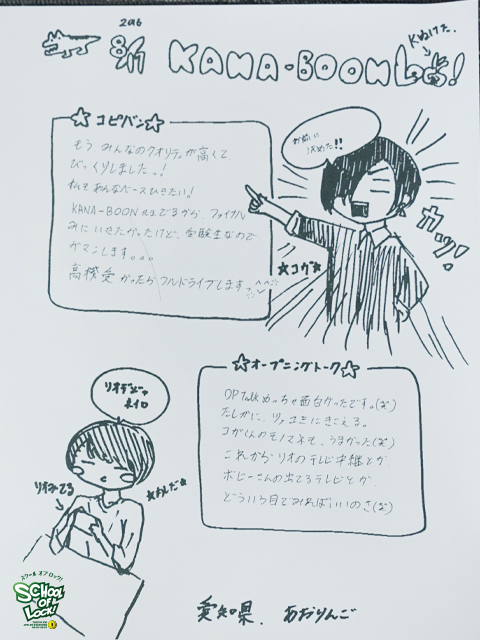 2016
8/17
KANA-BOON LOCKS!
Kぬけた。
☆コピバン☆
もう みんなのクオリティが高くて、
びっくりしました…!
私もあんなベースひきたい!
KANA-BOONもでるから、ファイナル
みにいきたかったけど、受験生なので
ガマンします。。。
高校受かったらフルドライブします
お前に
決めた!!
カッ!
☆コガ☆
☆オープニングトーク☆
OPTalkめっちゃ面白かったです。(笑)
たしかに、リフュミにきこえる。
コガくんのモノマネも、うまかった(笑)
これから リオのテレビ中継とか、
ボビーさんの出てるテレビとか、
どういう目でみればいいのさ(笑)
リオデジャ
ネイロ
リオみてる
☆よしだ☆
スクール オブ ロック!
SCHOOL
OF
LOCK!
愛知県. あおりんご